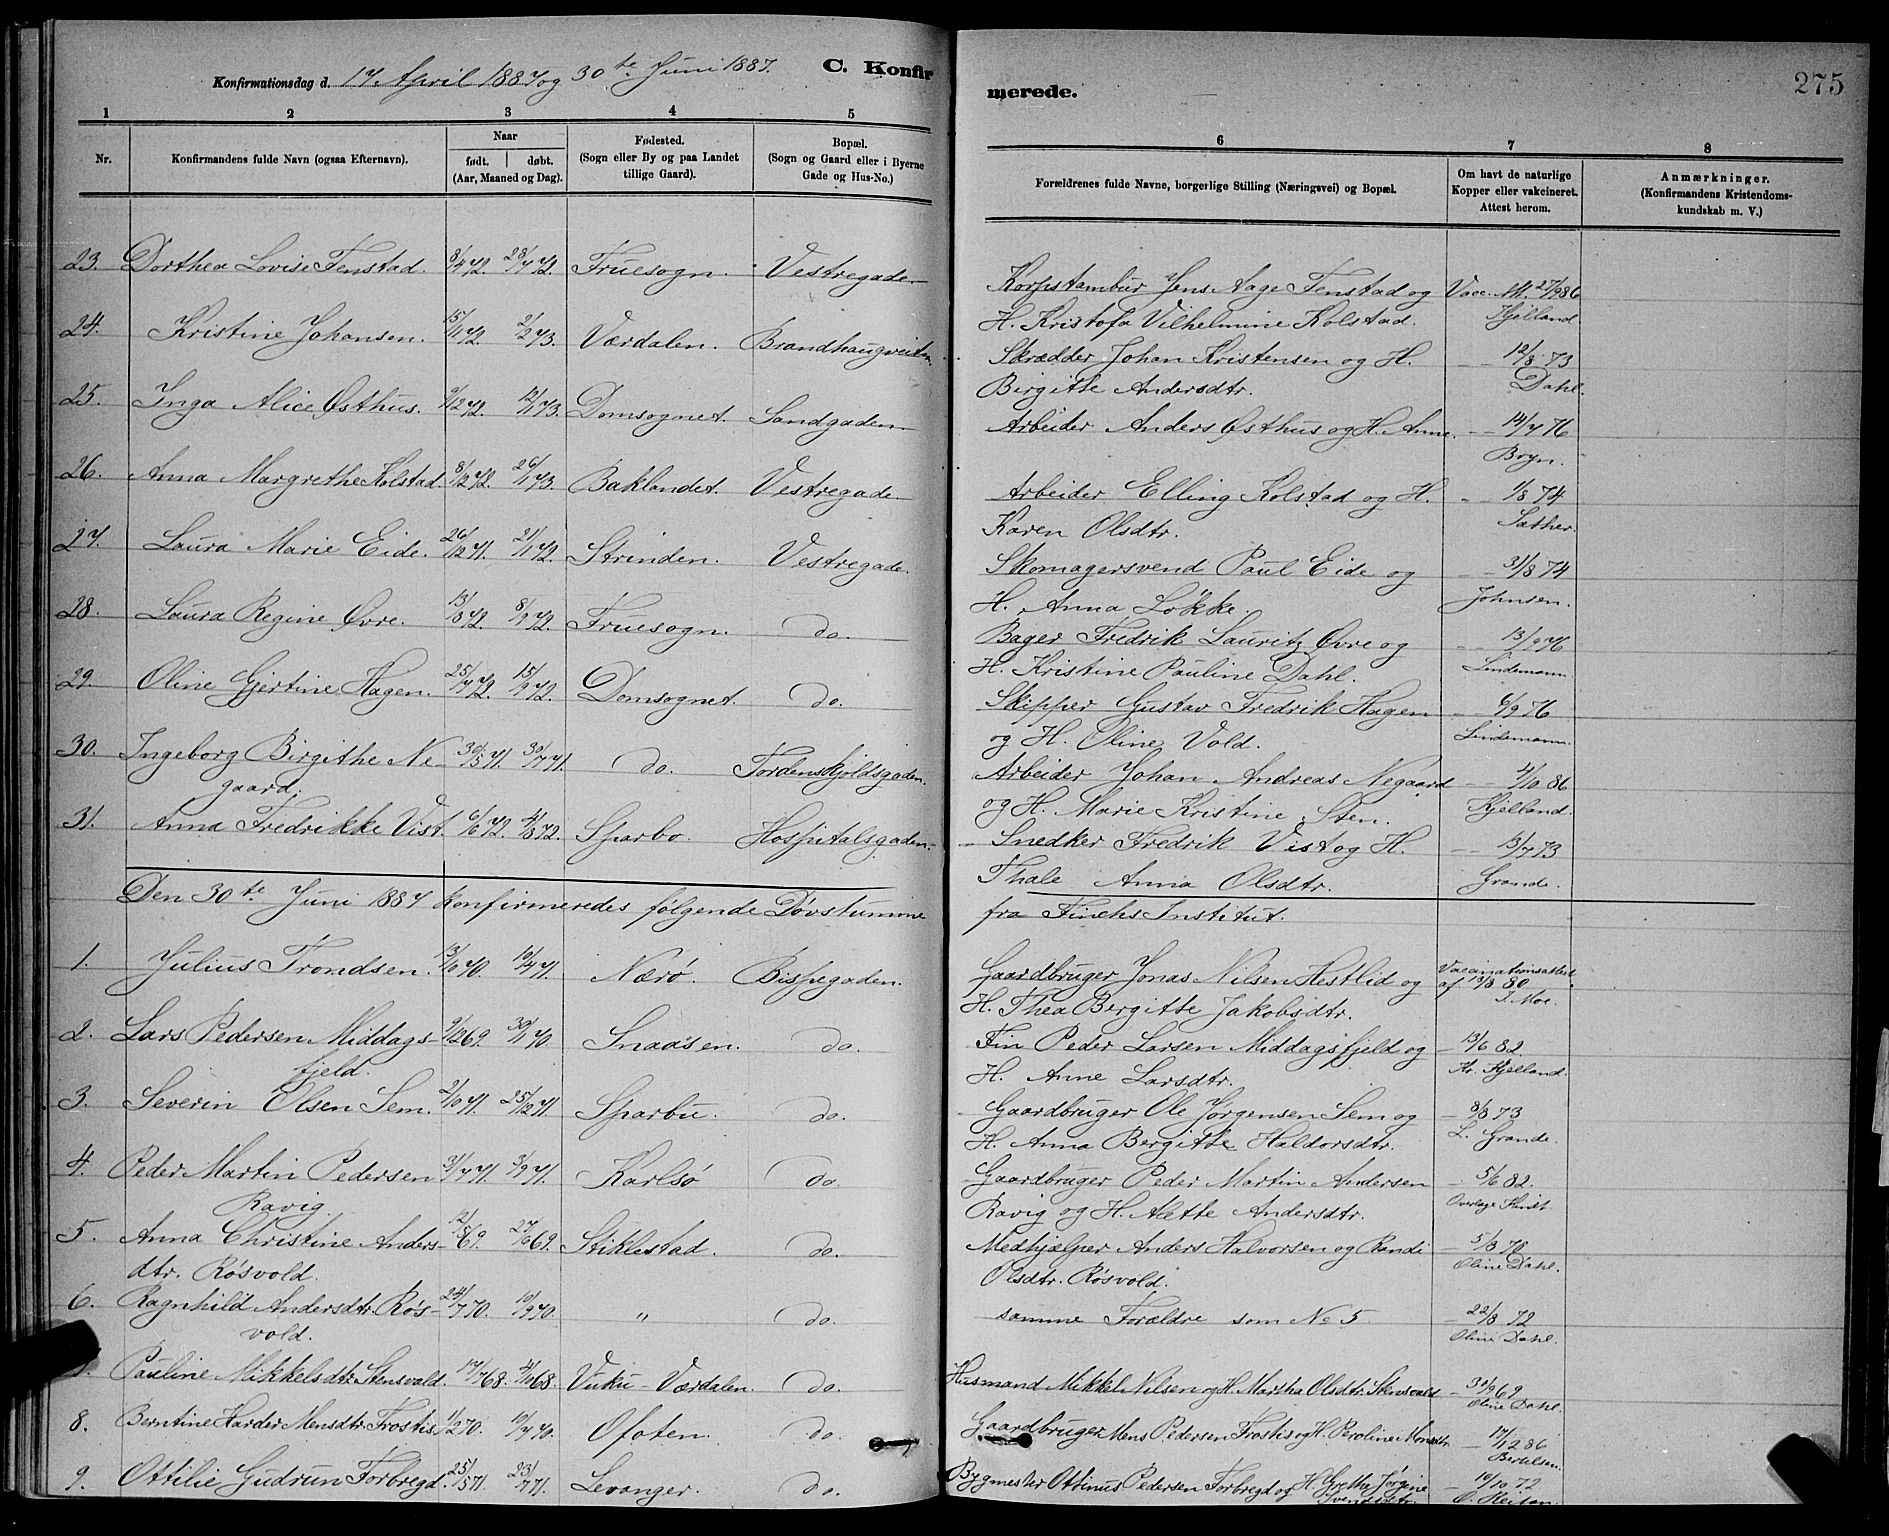 Konfirmationsdag d. 17. April 1887 og 30te Juni 1887. C. Konfirmerede. 275
1 2 3 4 5 6 7 8
Nr. Konfirmandens fulde Navn (ogsaa Efternavn). Naar født. døbt. (Aar, Maaned og Dag). Fødested. (Sogn eller By og paa Landet tillige Gaard). Bopæl. (Sogn og Gaard eller i Byerne Gade og Hus-No.) Forældrenes fulde Navne, borgerlige Stilling (Næringsvei) og Bopæl. Om havt de naturlige Kopper eller vakcineret. Attest herom. Anmærkninger. (Konfirmandens Kristendomskundskab m. V.)
23. Dorthea Lovise Fenstad. 8/4 72. 28/7 72. Fruesogn. Vestregade. Korpstambur Jens Aage Fenstad og Vacc. Att. 27/9 86
H. Kristofa Vilhelmine Kolstad. Kjelland
24. Kristine Johansen. 15/11 72. 2/2 73. Værdalen. Brandhaugveiten. Skrædder Johan Kristensen og H. 12/8 73
Birgitte Andersdtr. Dahl.
25. Inga Alice Østhus. 9/12 72. 12/1 73. Domsognet. Sandgaden. Arbeider Anders Østhus og H. Anne 14/7 76
Bryn.
26. Anna Margrethe Kolstad. 8/12 72. 26/1 73. Baklandet. Vestregade. Arbeider Elling Kolstad og H. 1/8 74
Karen Olsdtr. Sæther.
27. Laura Marie Eide. 26/12 71. 21/1 72. Strinden. Vestregade. Skomagersvend Paul Eide og 31/8 74
H. Anna Løkke. Johnsen.
28. Laura Regine Øvre. 13/8 72. 8/9 72. Fruesogn. do. Bager Fredrik Lauritz Øvre og 13/9 76
H. Kristine Pauline Dahl. Lindemann
29. Oline Gjertine Hagen. 25/7 72. 15/9 72. Domsognet. do. Skipper Gustav Fredrik Hagen 6/9 76
og H. Oline Vold. Lindemann.
30. Ingeborg Birgithe Ne- 30/5 71. 30/7 71. do. Tordenskjoldsgaden. Arbeider Johan Andreas Negaard 4/10 86
gaard. og H. Marie Kristine Sten. Kjelland.
31. Anna Fredrikke Vist. 6/6 72. 4/8 72. Sparbo. Hospitalsgaden. Snedker Fredrik Vist og H. 13/7 73
Thale Anna Olsdtr. Grande.
Den 30te Juni 1887 konfirmeredes følgende Døvstumme fra Finchs Institut.
1. Julius Trondsen. 13/10 70. 10/4 71. Nærø. Bispegaden. Gaardbruger Jonas Nilsen Hestlid og Vacinationsattest
H. Thea Bergitte Jakobsdtr. af 13/8 80 Moe.
2. Lars Pedersen Middags- 9/12 69. 30/1 70. Snaasen. do. Fin Peder Larsen Middagsfjeld og 13/6 82.
fjeld. H. Anne Larsdtr. Kr. Kjelland.
3. Severin Olsen Sem. 2/10 71. 25/12 71. Sparbu. do. Gaardbruger Ole Jørgensen Sem og 8/8 73
H. Anna Bergitte Haldorsdtr. L. Grande.
4. Peder Martin Pedersen 31/7 71. 3/9 71. Karlsø do. Gaardbruger Peder Martin Andersen 5/6 82.
Ravig. Ravig og H. Alette Andersdtr.
5. Anna Christine Anders- 12/5 69. 27/6 69. Stiklestad. do. Medhjælper Anders Halvorsen og Randi 5/8 78
dtr. Røsvold. Olsdtr. Røsvold. Oline Dahl.
6. Ragnhild Andersdtr. Røs- 24/7 70. 10/9 70. " do. samme Forældre som No 5 22/8 72
vold. Oline Dahl.
Pauline Mikkelsdtr. Stensvald. 17/7 68. 4/10 68. Vuku-Værdalen. do. Husmand Mikkel Nilsen og H. Martha Olsdtr. Stensvald 30/9 69
Oline Dahl.
8. Berntine Harder Mensdtr. Frostis. 1/2 70. 10/7 70. Ofoten. do. Gaardbruger Mens Pedersen Frostis og H. Peroline Monsdtr. 17/12 86
Bertelsen.
9. Ottilie Gudrun Forbregd. 25/5 71. 23/7 71. Levanger. do. Bygmester Ottinus Pedersen Forbregd og H. Grethe Jørgine 10/10 72
Svendsdtr.